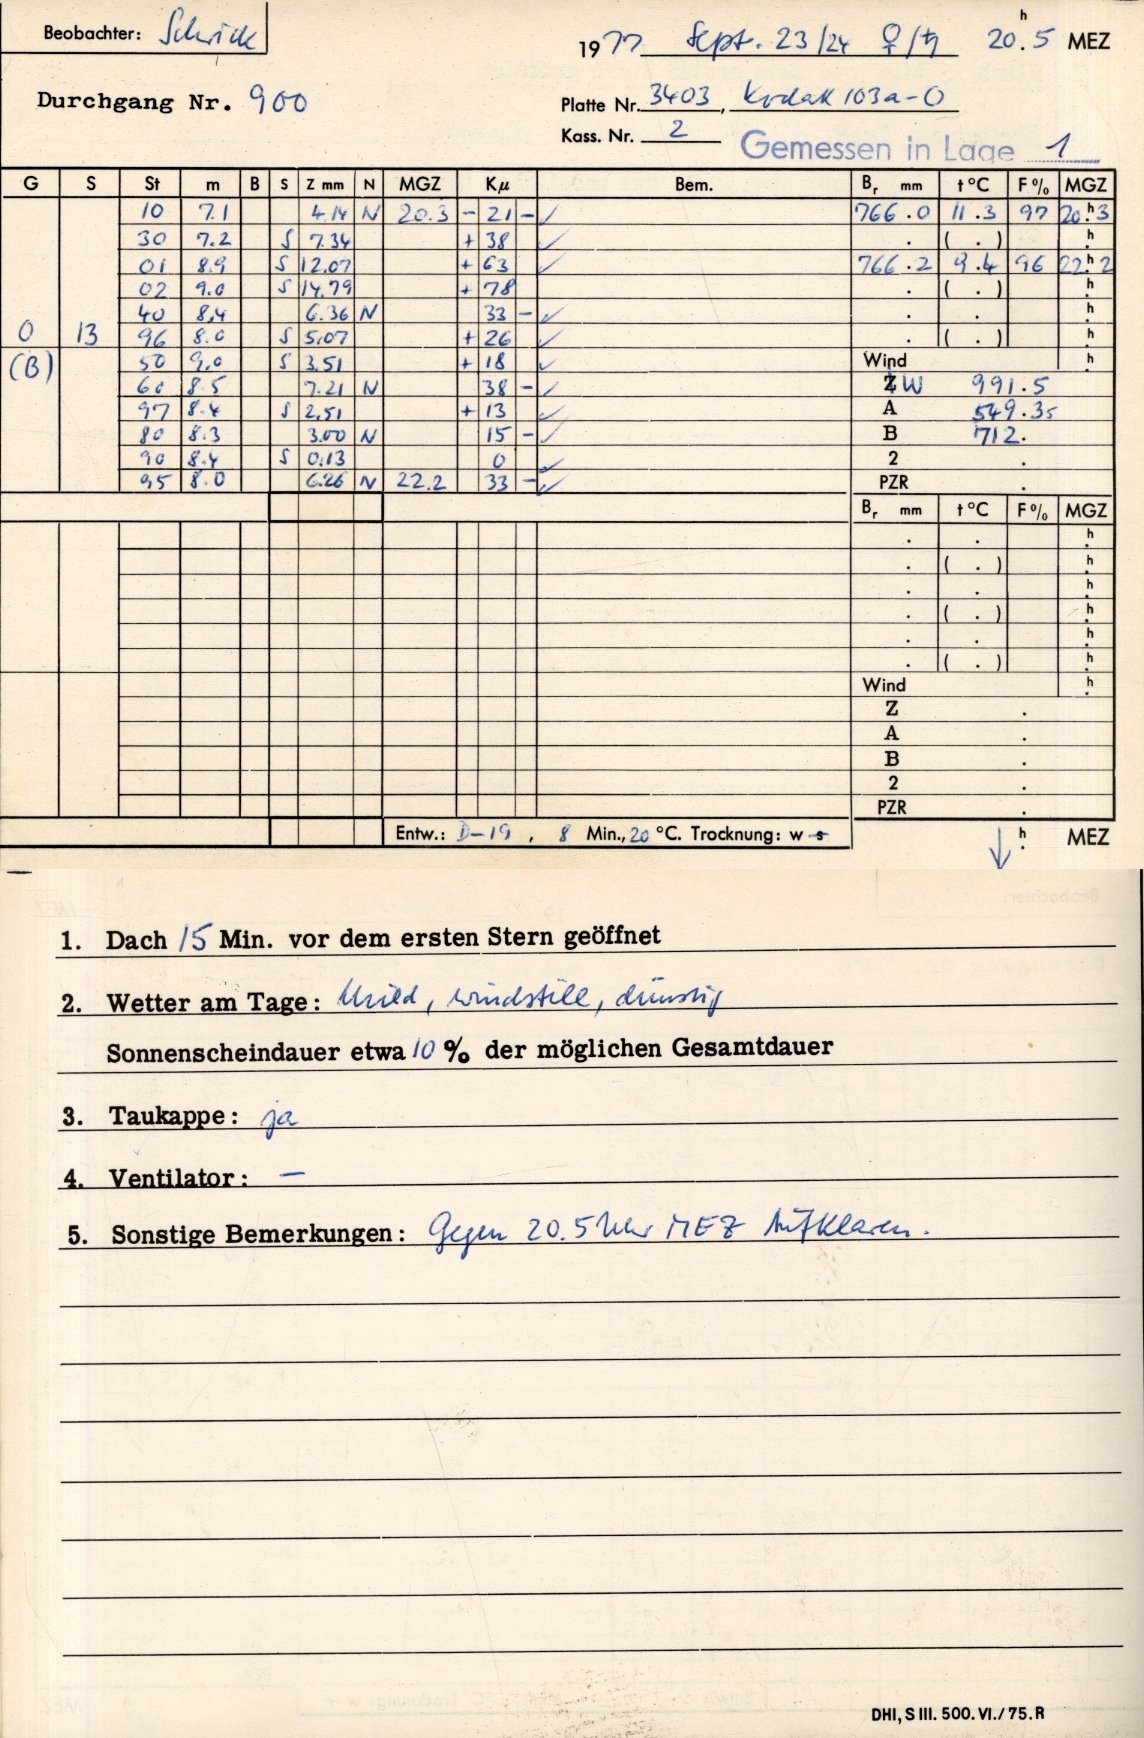 Beobachter: Schrick
1977 Sept. 23/24 ♀/♄ 20.ʰ5 MEZ
Durchgang Nr. 900
Platte Nr. 3403, Kodak 103a-O
Kass. Nr. 2
Gemessen in Lage 1
G S St m B S Z mm N MGZ Kμ Bem. Bᵣ mm t°C F% MGZ
10 7.1 4.14 N 20.3 - 21 - ✓ 766.0 11.3 97 20.ʰ3
30 7.2 S 7.34 + 38 ✓ . ( . ) ʰ.
01 8.9 S 12.07 + 63 ✓ 766.2 9.4 96 22.ʰ2
02 9.0 S 14.79 + 78 . ( . ) ʰ.
40 8.4 6.36 N 33 - ✓ . . ʰ.
0 13 96 8.0 S 5.07 + 26 ✓ . ( . ) ʰ.
(B) 50 9.0 S 3.51 + 18 ✓ Wind ʰ.
60 8.5 7.21 N 38 - ✓ Z W 991.5
97 8.4 S 2.51 + 13 ✓ A 549.35
80 8.3 3.00 N 15 - ✓ B 712.
90 8.4 S 0.13 0 ✓ 2 .
95 8.0 6.26 N 22.2 33 - ✓ PZR .
Bᵣ mm t°C F% MGZ
. . ʰ.
. ( . ) ʰ.
. . ʰ.
. ( . ) ʰ.
. . ʰ.
. ( . ) ʰ.
Wind ʰ.
Z .
A .
B .
2 .
PZR .
Entw.: D-19, 8 Min., 20 °C. Trocknung: w s
↓ ʰ. MEZ
1. Dach 15 Min. vor dem ersten Stern geöffnet
2. Wetter am Tage: Mild, windstill, dunstig
Sonnenscheindauer etwa 10 % der möglichen Gesamtdauer
3. Taukappe: ja
4. Ventilator: —
5. Sonstige Bemerkungen: Gegen 20.5 Uhr MEZ Aufklaren.
DHI, S III. 500. VI./75. R